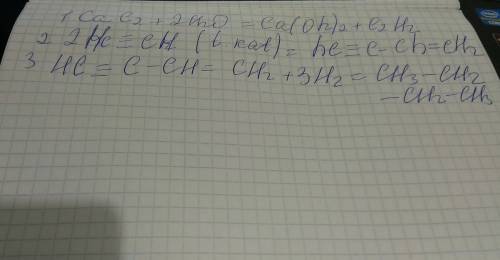 1 Ca C2 + 2H2O = Ca(Oh)2 + C2H2
2 2HC≡CH (t kat) = hC≡C-Ch=CH2
3 HC≡C-CH=CH2+3H2=CH3-CH2
-CH2-CH3